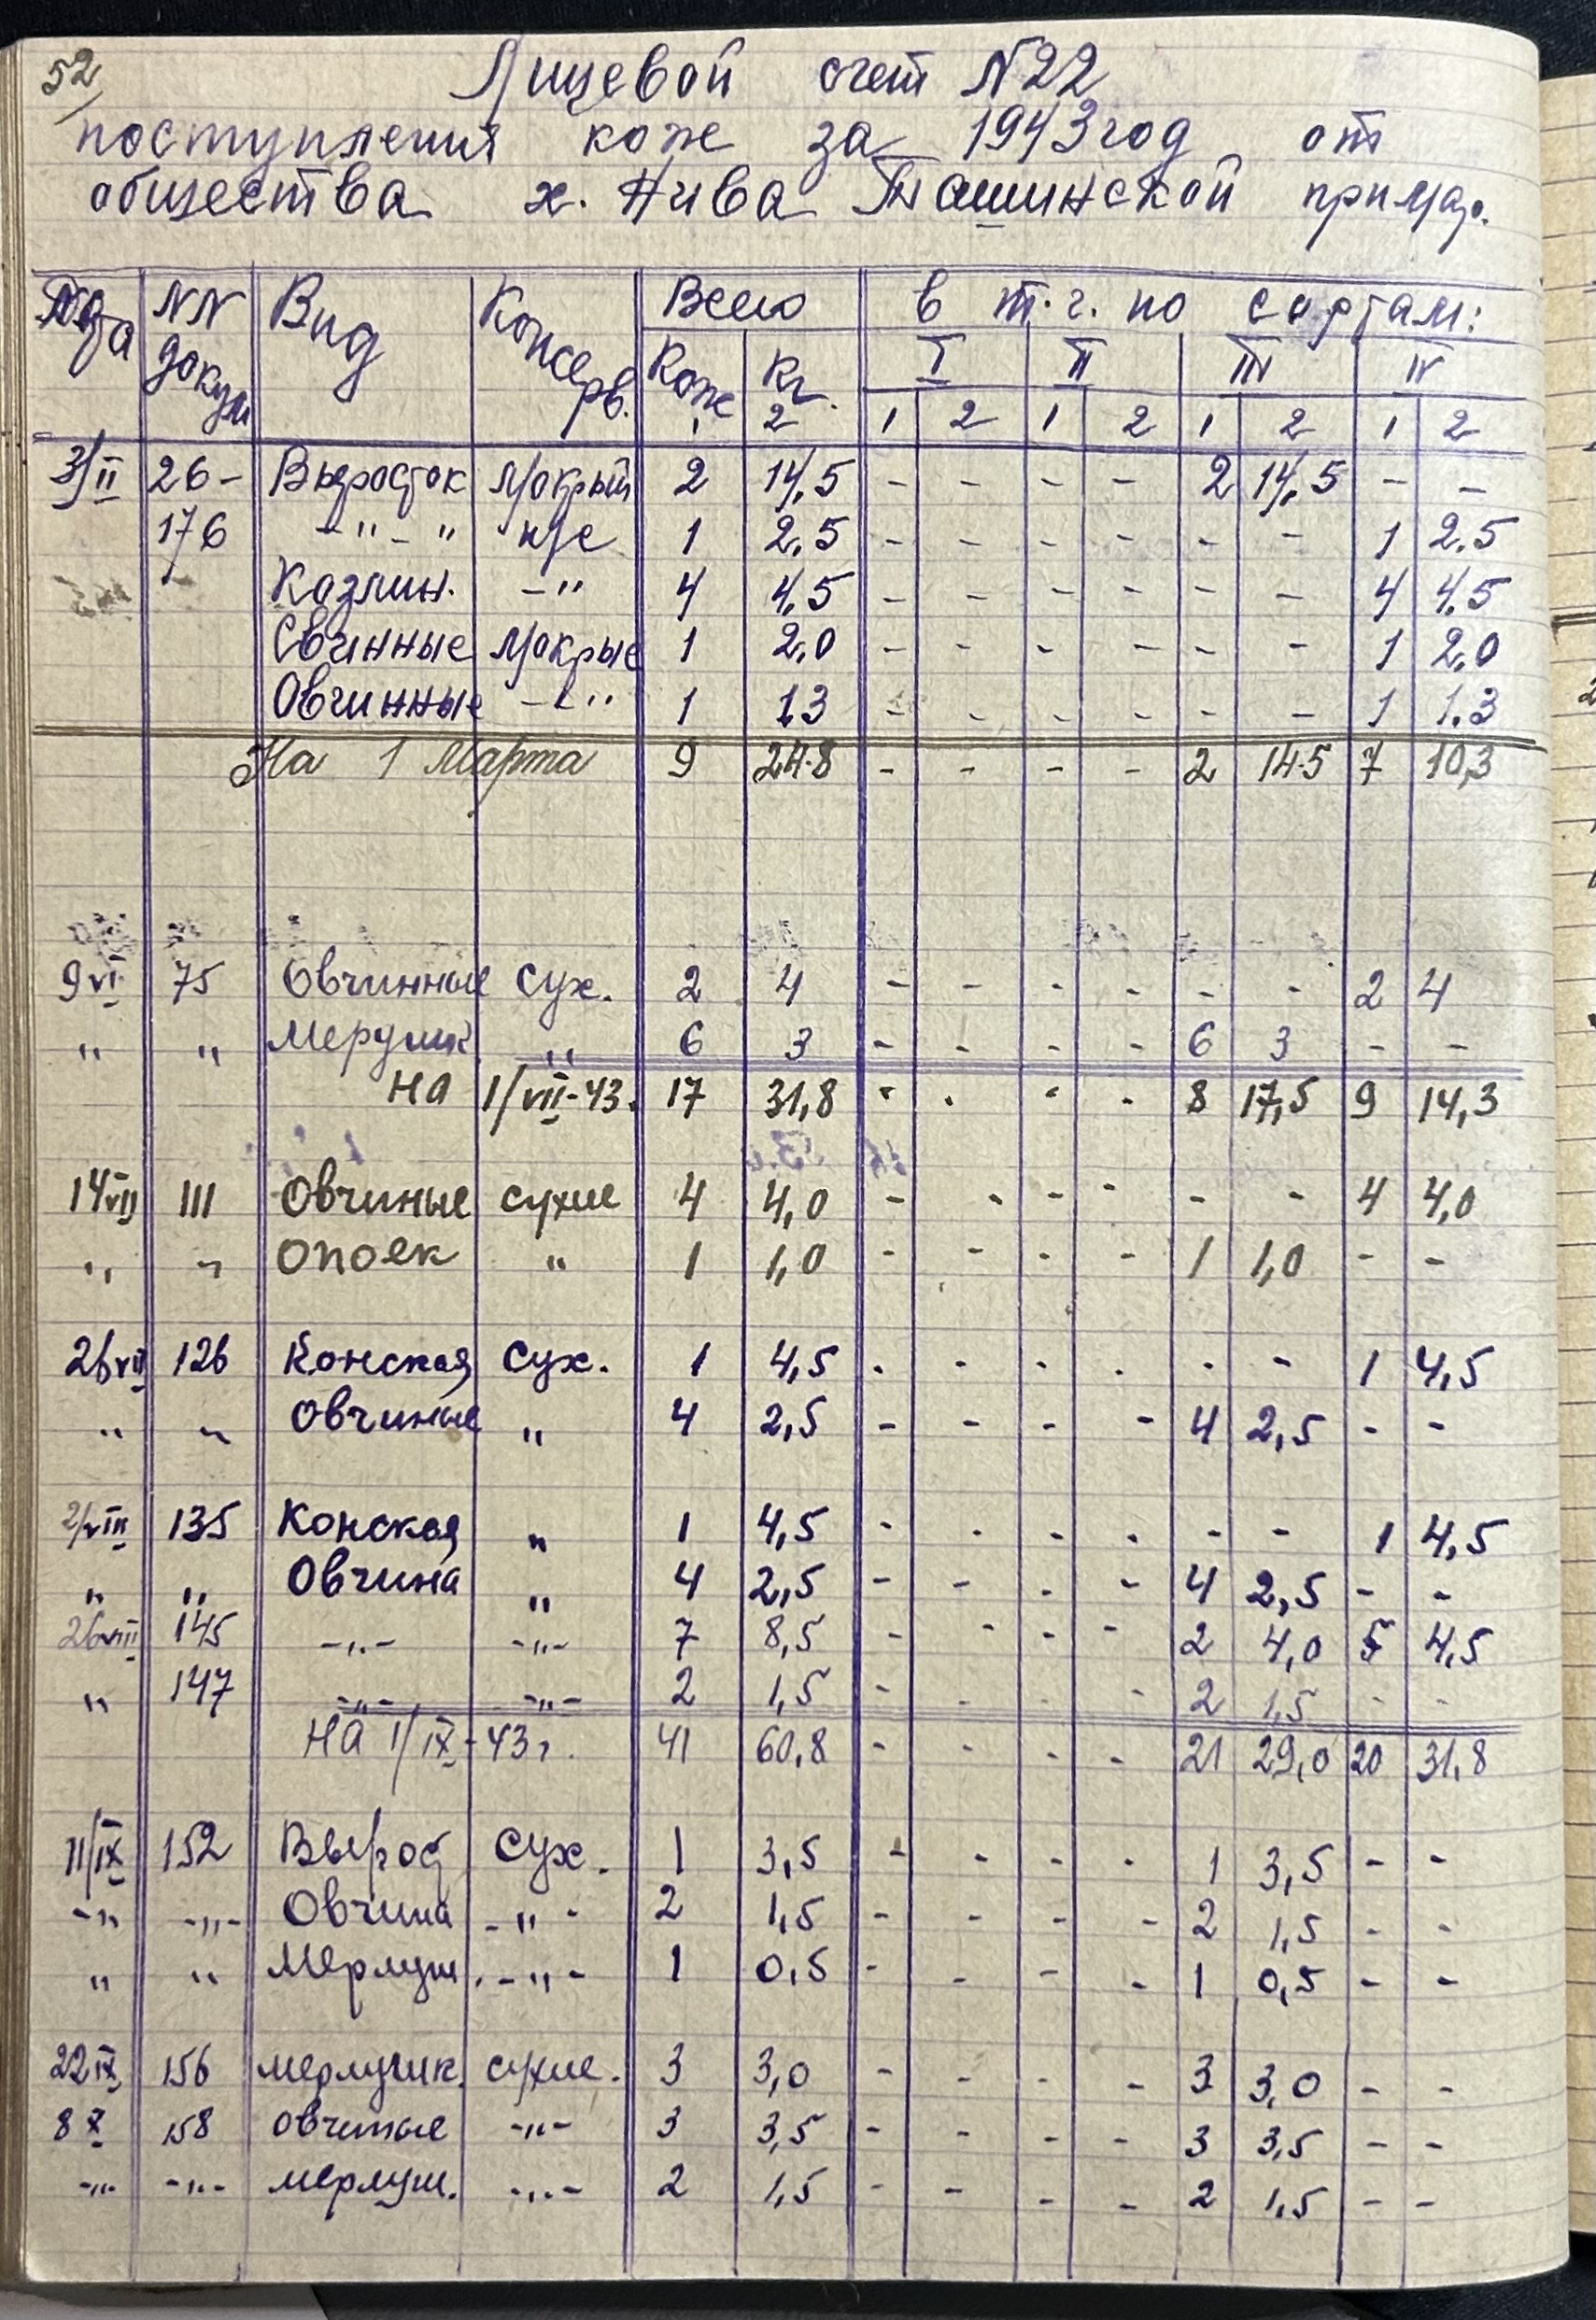 52
Лицевой счет N22
поступления коже за 1943 год от
общества х. Нива Ташинской примар.
Дата NN докум Вид Консерв. Всего в т.ч. по сортам:
Коже Кг. I II III IV
1 2 1 2 1 2 1 2 1 2
3/II 26- Выросток мокрый 2 14,5 - - - - 2 14,5 - -
176 -"-" н/с 1 2,5 - - - - - - 1 2.5
Козлин. -" 4 4,5 - - - - - - 4 4,5
Свинные мокрые 1 2,0 - - - - - - 1 2,0
Овчинные -" 1 1,3 - - - - - - 1 1.3
На 1 Марта 9 24.8 - - - - 2 14.5 7 10,3
9 VI 75 Овчинные сух. 2 4 - - - - - - 2 4
" " Мерушк. " 6 3 - - - - 6 3 - -
На 1/VII-43. 17 31,8 - - - - 8 17,5 9 14,3
14 VII 111 Овчиные сухие 4 4,0 - - - - - - 4 4,0
" " Опоек " 1 1,0 - - - - 1 1,0 - -
26 VII 126 Конская сух. 1 4,5 - - - - - - 1 4,5
" " Овчиные " 4 2,5 - - - - 4 2,5 - -
2/VIII 135 Конская " 1 4,5 - - - - - - 1 4,5
" " Овчина " 4 2,5 - - - - 4 2,5 - -
26 VIII 145 -"- -"- 7 8,5 - - - - 2 4,0 5 4,5
" 147 -"- -"- 2 1,5 - - - - 2 1,5 - -
На 1/IX-43г. 41 60,8 - - - - 21 29,0 20 31,8
11/IX 152 Вырос сух. 1 3,5 - - - - 1 3,5 - -
-" -"- Овчина -"- 2 1,5 - - - - 2 1,5 - -
" " Мерлуш. -"- 1 0,5 - - - - 1 0,5 - -
22 IX 156 мерлушк. сухие. 3 3,0 - - - - 3 3,0 - -
8 X 158 овчиные -"- 3 3,5 - - - - 3 3,5 - -
-"- -"- мерлуш. -"- 2 1,5 - - - - 2 1,5 - -